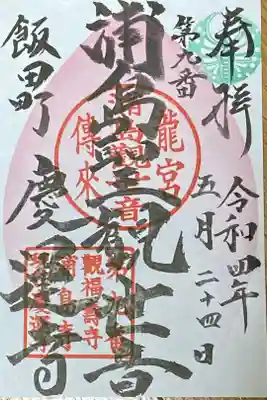 奉拝
第九番
令和四年
五月二十四日
浦島観世音
龍宮
傳来
浦島観世音
飯田町
慶運寺
第九番
観福壽寺
浦島寺